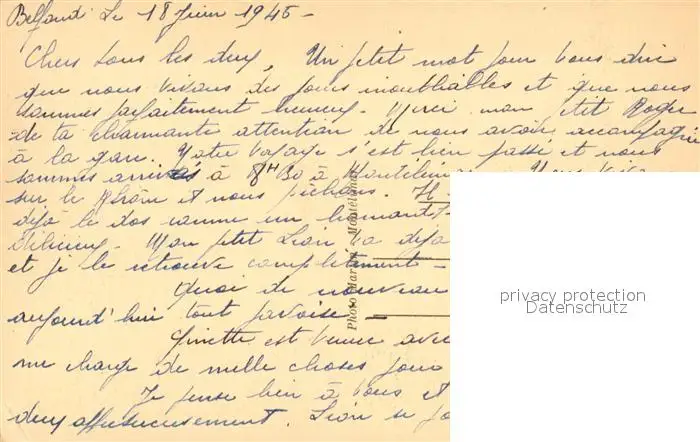 Le 18 Juin 1945 -
Chers tous les deux, Un petit mot pour vous dire
que nous vivons des jours inoubliables et que nous
sommes parfaitement heureux - Merci mon petit Roger
de ta charmante attention de nous avoir accompagné
à la gare. Notre voyage s'est bien passé et nous
sommes arrivés à 8H30 à Montélimar
sur le Rhône et nous pêchons.
déjà le dos comme un homard
délicieux - Mon petit Lion va déjà
et je le retrouve complètement -
Quoi de nouveau
aujourd'hui tout pavoise
Ginette est venue avec
me charge de mille choses pour
Je pense bien à vous et
deux affectueusement. Lion se jo
Photo Montélimar
privacy protection
Datenschutz